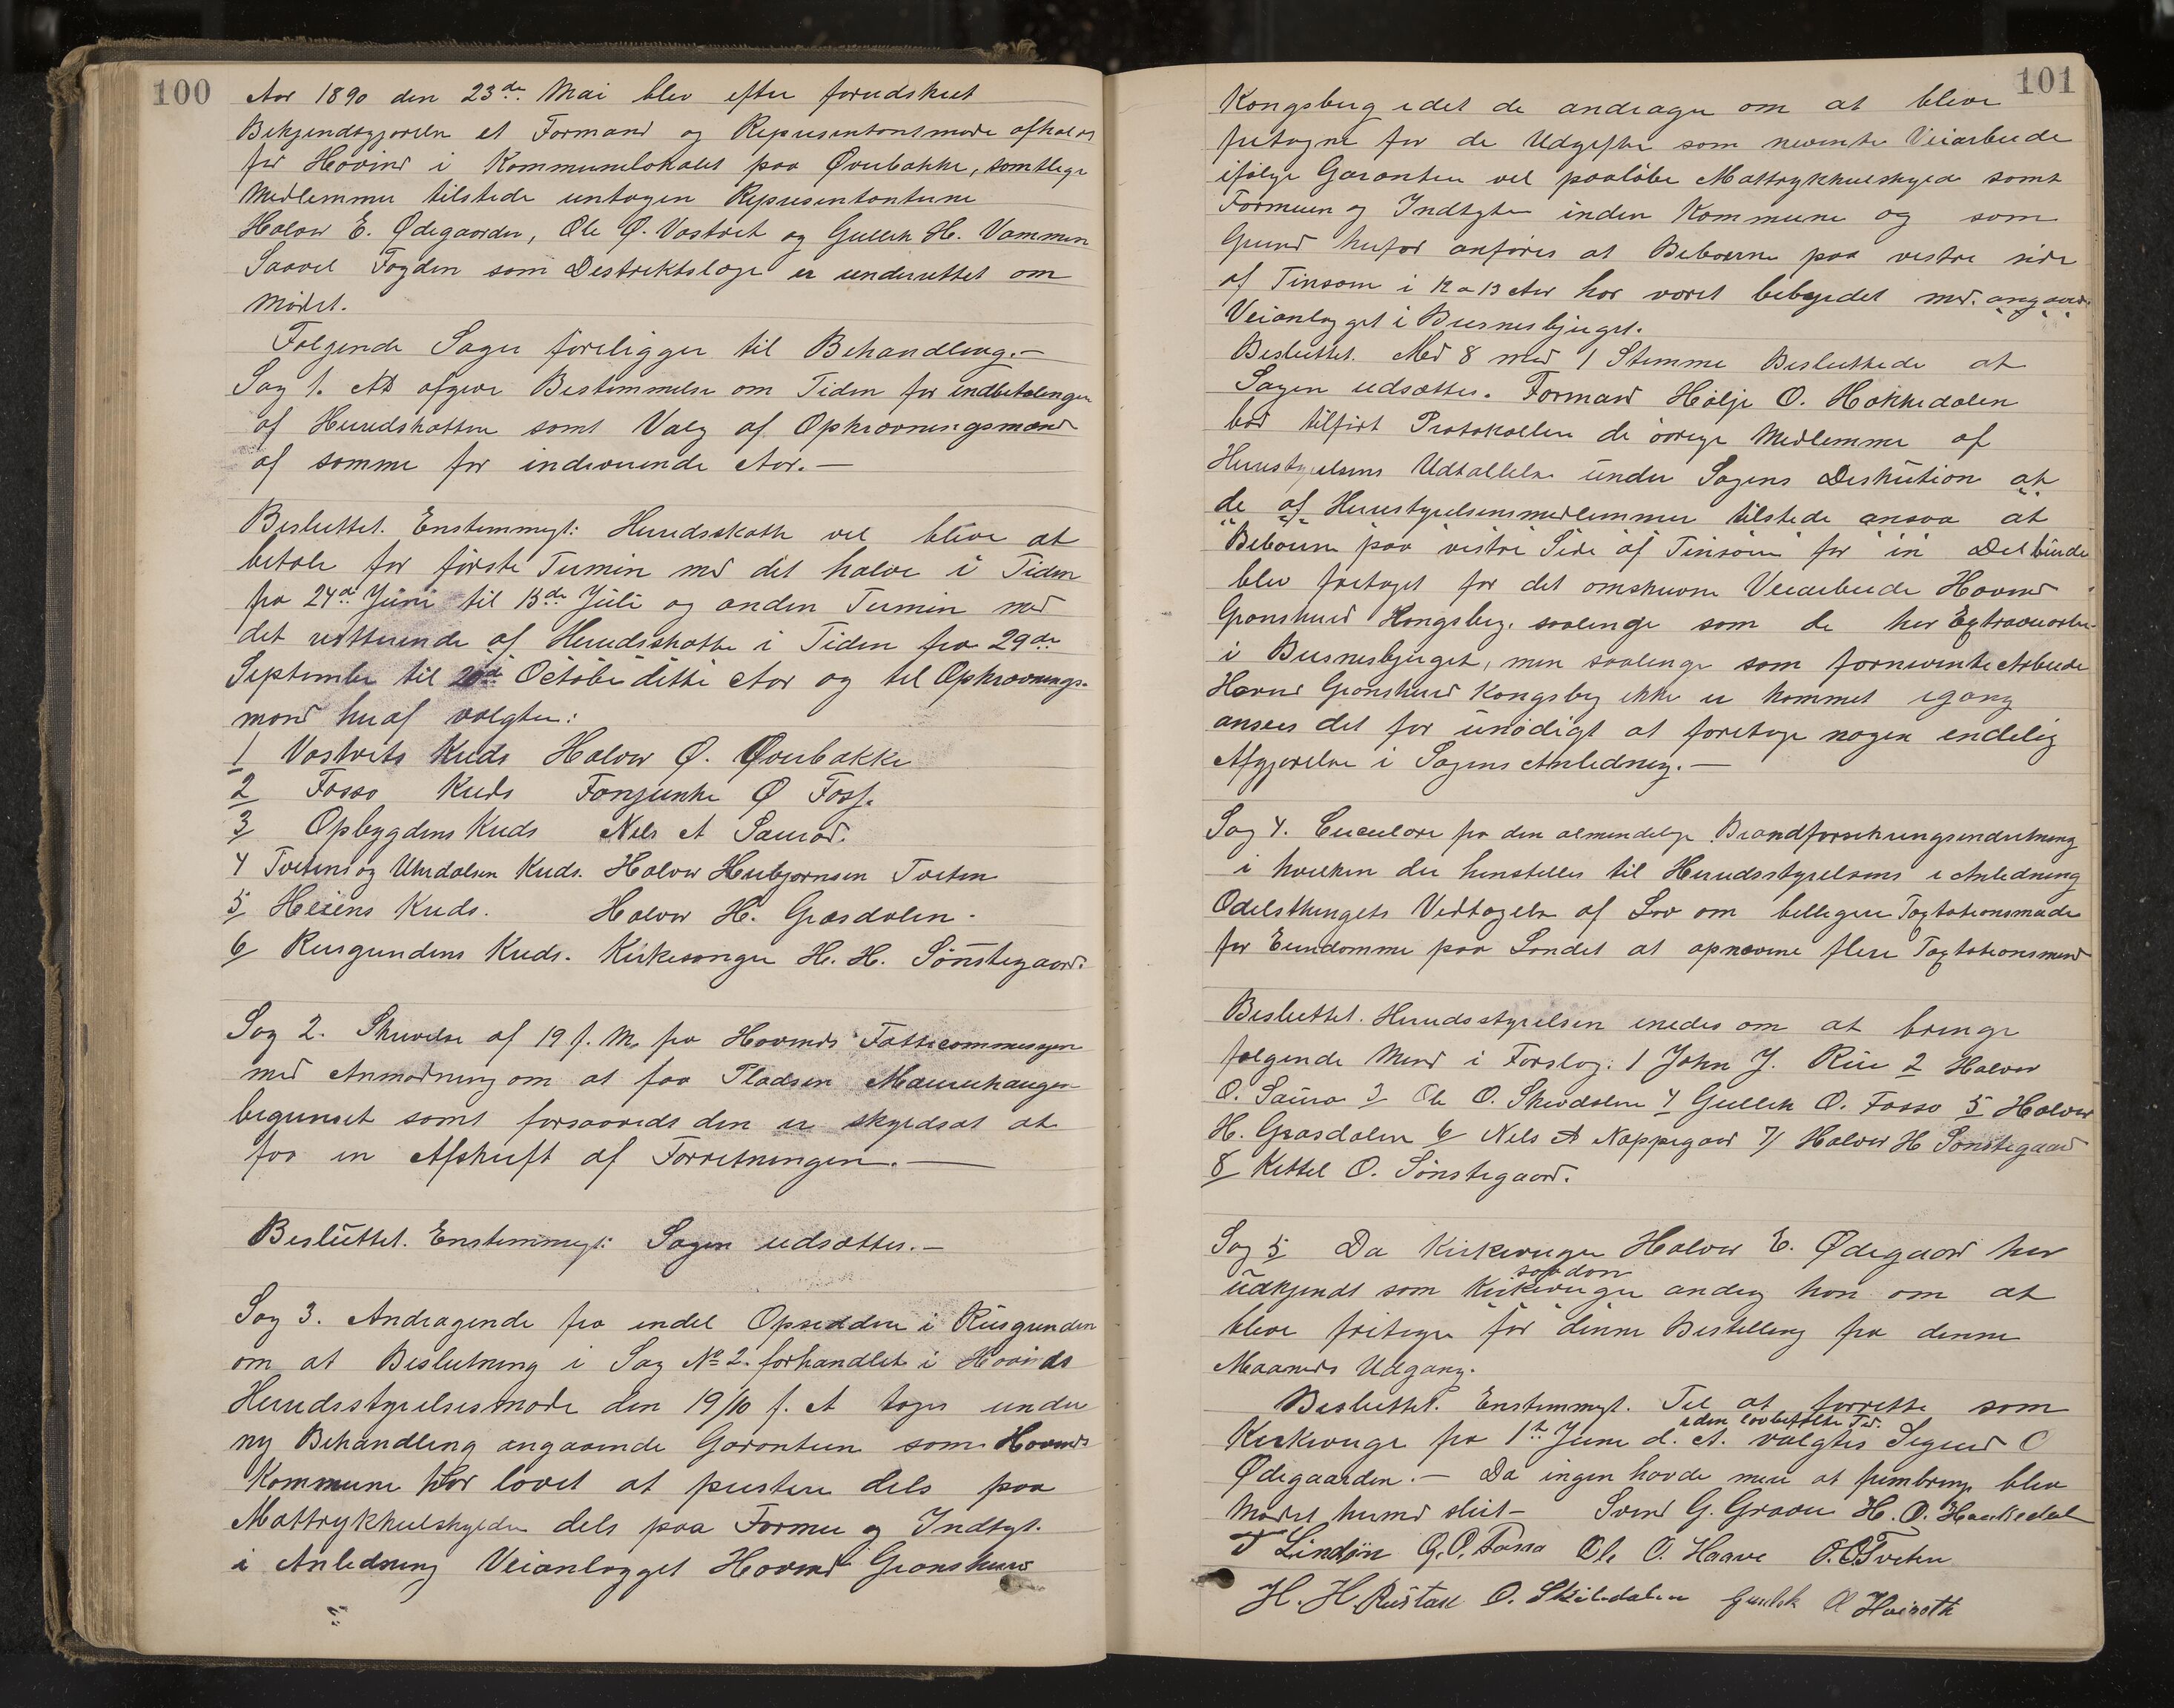 100
Aar 1890 den 23de Mai blev efter forudskeet
Bekjendtgjørelse et Formand og Representantmøde afholdt
for Hovind i Kommunelokalet paa Øverbakke, samtlige
Medlemmer tilstede untagen Representanterne
Halvor E. Ødegaarden, Ole Ø. Vastveit og Gullik H. Vammen
Saavel Fogden som Destriktslæge er underrettet om
Mødet.
Følgende Sager foreligger til Behandling.—
Sag 1. At afgive Bestemmelse om Tiden for indbetalingen
af Herredskatten samt Valg af Opkrævningsmænd
af samme for indeværende Aar.—
Besluttet. Enstemmigt: Herredsskatten vil blive at
betale for første Termin med det halve i Tiden
fra 24de Juni til 13de Juli og anden Termin med
det resterende af Herredsskatten i Tiden fra 29de
September til 20de October dette Aar og til Opkrævnings-
mænd heraf valgtes:
1 Vastveits Kreds Halvor Ø. Øverbakke
2 Fosso Kreds Ø Foss.
3 Opbygdens Kreds Nils A Saurød.
4 Tveitens og Uverdalsen Kreds. Halvor Herbjørnsen Tveten
5 Heiens Kreds. Halvor H. Græsdalen.
6 Rusgrendens Kreds. Kirkesanger H. H. Sønstegaard.
Sag 2. Skrivelse af 19 f. M. fra Hovinds Fattigcommesjon
med Anmodning om at faa Pladsen Maurhaugen
begrænset samt forsaavidt den er skyldsat at
faa en Afskrift af Forretningen.—
Besluttet. Enstemmigt: Sagen udsættes.—
Sag 3. Andragende fra endel Opsiddere i Rusgrenden
om at Beslutning i Sag No 2. forhandlet i Hovinds
Herredsstyrelsesmøde den 19/10 f. A tages under
ny Behandling angaaende Garantien som Hovinds
Kommune har lovet at præstere dels paa
Mattrykkulskylden dels paa Formue og Indtægt.
i Anledning Veianlægget Hovind Granshered
101
Kongsberg idet de andrager om at blive
fritagne for de Udgifter som nevnte Veiarbeide
ifølge Garantien vil paaløbe Mattrykkulskyld samt
Formuen og Indtægter inden Kommune og som
Grund herfor anføres at Beboerne paa vestre side
af Tinsøen i 12 a 13 Aar har været bebyrdet med angaaend.
Veianlægget i Busnesbjerget.
Besluttet. Med 8 mod 1 Stemme Besluttede at
Sagen udsættes. Formand Hølje O. Hakkedalen
bad tilført Protokollen de øvrige Medlemmer af
Herrestyrelsens Udtallelse under Sagens Diskution at
de af Herrestyrelsensmedlemmer tilstede ansaa at
Beboerne paa vestre Side af Tinsøen for in Del burde
blev fretaget for det omskrevne Veiarbeide Hovind
Granshered Kongsberg. saalenge som de har Extraveiarbei-
i Busnesbjerget, men saalenge som fornevnte Arbeide
Hovind Granshered Kongsberg ikke er kommet igang
ansees det for unødigt at foretage nogen endelig
Afgjørelse i Sagens Anledning.—
Sag 4. Circulære fra den almindelige Brandforsikringsindretning
i hvilken der henstilles til Herredsstyrelsens i Anledning
Odelsthingets Vedtagelse af Lov om billigere Taxtationsmaade
for Eiendomme paa Landet at opnævne flere Taxtationsmænd
Besluttet. Herredsstyrelsen enedes om at bringe
følgende Mænd i Forslag: 1 John J. Rue 2 Halvor
O. Saura 3 Ole O. Skevdalen 4 Gullik O. Fosso 5 Halvor
H. Græsdalen 6 Nels A Nappegaar 7/ Halvor H Sønstegaard
8 Kittel O. Sønstegaard.
Sag 5 Da Kirkeverge Halvor E. Ødegaard har
saadan
udtjendt som Kirkeverge andrag han om at
blive fritagen for denne Bestilling fra denne
Maaneds Udgang.
Besluttet. Enstemmigt. Til at forrette som
i den lovbefalte Tid.
Kirkeverge fra 1ste Juni d. A. valgtes Sigurd O
Ødegaarden.— Da ingen havde mere at frembringe blev
Mødet hermed sluttet— Svend G. Graver H. O. Haakedal
T Lindøin G. O. Fosso Ole O. Haave O. O. Tveten
H. H. Rustad O. Skeiedalen Gunlek O